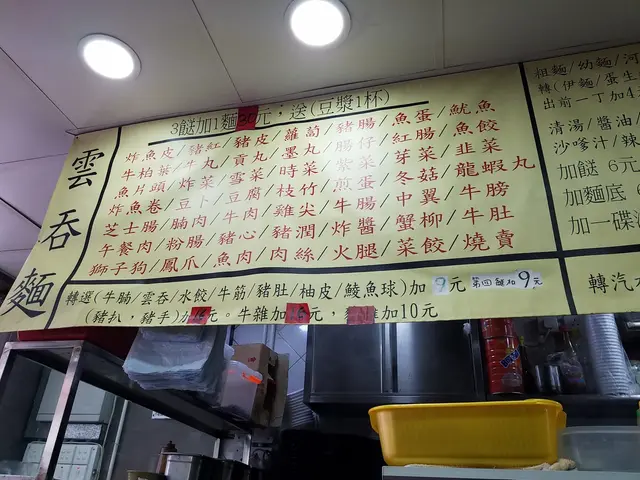 雲吞麵
3餸加1麵30元；送(豆漿1杯)
炸魚皮/豬紅/豬皮/蘿蔔/豬腸/魚蛋/魷魚
牛柏葉/牛丸/貢丸/墨丸/腸仔/紅腸/魚餃
魚片頭/炸菜/雪菜/時菜/紫菜/芽菜/韭菜
炸魚卷/豆卜/豆腐/枝竹/煎蛋/冬菇/龍蝦丸
芝士腸/腩肉/牛肉/雞尖/牛腸/中翼/牛膀
午餐肉/粉腸/豬心/豬潤/炸醬/蟹柳/牛肚
獅子狗/鳳爪/魚肉/肉絲/火腿/菜餃/燒賣
轉選(牛腩/雲吞/水餃/牛筋/豬肚/柚皮/鯪魚球)加9元 第四餸加9元
(豬扒，豬手)加 元。牛雜加 元， 加10元
粗麵/幼麵/河
轉(伊麵/蛋生
出前一丁加4
清湯/醬油/
沙嗲汁/辣
加餸 6元
加麵底
加一碟
轉汽